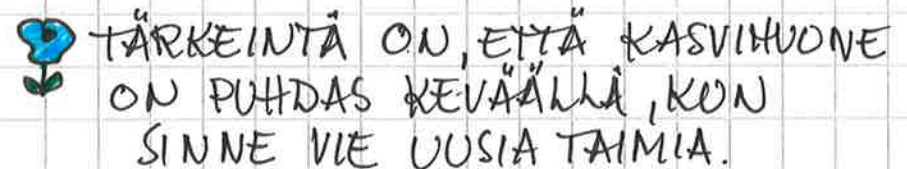 TÄRKEINTÄ ON, ETTÄ KASVIHUONE
ON PUHDAS KEVÄÄLLÄ, KUN
SINNE VIE UUSIA TAIMIA.